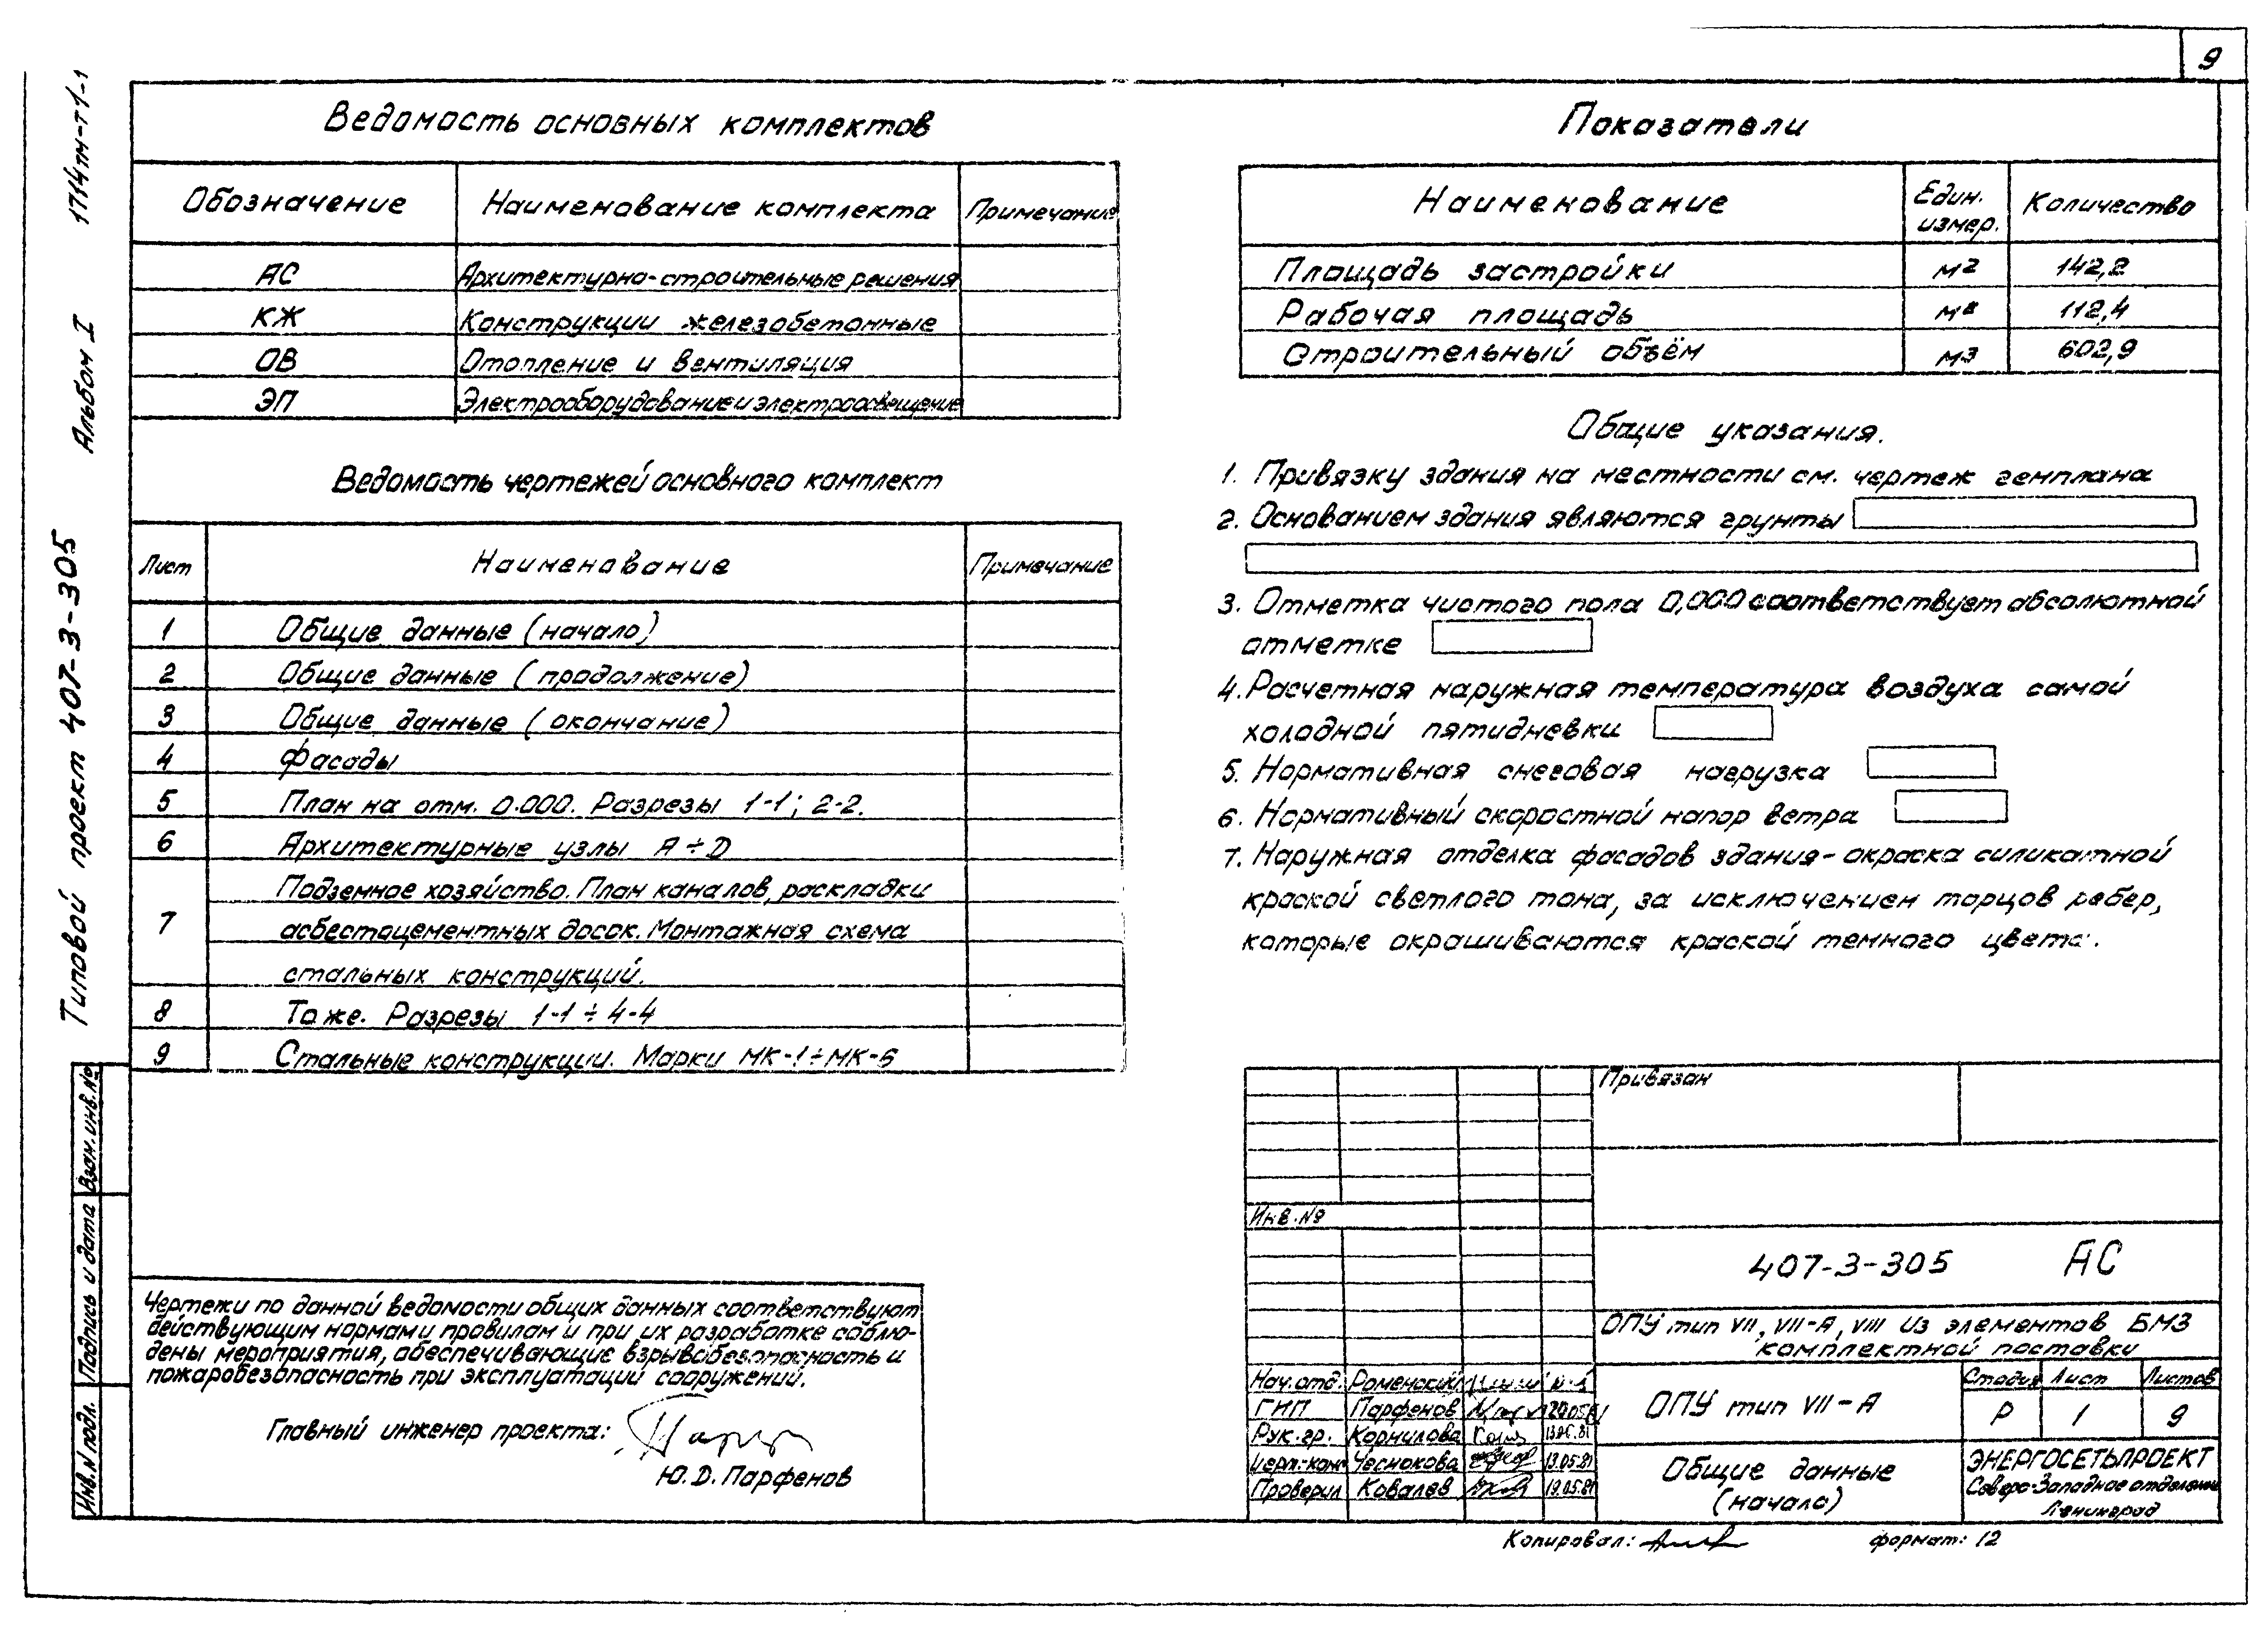 9
1714тм-т1-1
Альбом I
Типовой проект 407-3-305
Ведомость основных комплектов
Обозначение Наименование комплекта Примечание
АС Архитектурно-строительные решения
КЖ Конструкции железобетонные
ОВ Отопление и вентиляция
ЭП Электрооборудование и электроосвещение
Ведомость чертежей основного комплект
Лист Наименование Примечание
1 Общие данные (начало)
2 Общие данные (продолжение)
3 Общие данные (окончание)
4 Фасады
5 План на отм. 0.000. Разрезы 1-1; 2-2.
6 Архитектурные узлы А÷D
Подземное хозяйство. План каналов, раскладки
7 асбестоцементных досок. Монтажная схема
стальных конструкций.
8 То же. Разрезы 1-1÷4-4
9 Стальные конструкции. Марки МК-1÷МК-6
Показатели
Наименование Един. измер. Количество
Площадь застройки м2 142,2
Рабочая площадь м2 112,4
Строительный объём м3 602,9
Общие указания.
1. Привязку здания на местности см. чертеж генплана
2. Основанием здания являются грунты
3. Отметка чистого пола 0,000 соответствует абсолютной
отметке
4. Расчетная наружная температура воздуха самой
холодной пятидневки
5. Нормативная снеговая нагрузка
6. Нормативный скоростной напор ветра
7. Наружная отделка фасадов здания - окраска силикатной
краской светлого тона, за исключением торцов ребер,
которые окрашиваются краской темного цвета.
Взам. инв. №
Подпись и дата
Инв. N подл.
Чертежи по данной ведомости общих данных соответствуют
действующим нормам и правилам и при их разработке соблю-
дены мероприятия, обеспечивающие взрывобезопасность и
пожаробезопасность при эксплуатаций сооружений.
Главный инженер проекта:
Ю. D. Парфенов
Привязан
Инв. №
407-3-305 АС
ОПУ тип VII, VII-А, VIII из элементов БМЗ
комплектной поставки
Нач. отд. Роменский
ГИП Парфенов 20.05.81
Рук. гр. Корнилова
Чеснокова 19.05.81
Проверил Ковалев 19.05.81
ОПУ тип VII-А
Стадия Лист Листов
Р 1 9
Общие данные
(начало)
ЭНЕРГОСЕТЬПРОЕКТ
Северо-Западное отделение
Ленинград
Копировал:
формат: 12